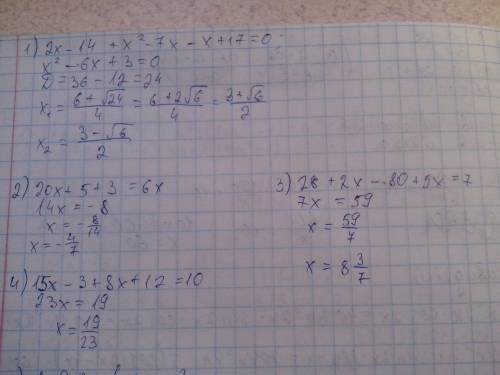 1) 2x - 14 + x² - 7x - x + 17 = 0
x² - 6x + 3 = 0
D = 36 - 12 = 24
x₁ = (6 + √24)/4 = (6 + 2√6)/4 = (3 + √6)/2
x₂ = (3 - √6)/2
2) 20x + 5 + 3 = 6x
14x = -8
x = -8/14
x = -4/7
3) 28 + 2x - 80 + 5x = 7
7x = 59
x = 59/7
x = 8 3/7
4) 15x - 3 + 8x + 12 = 10
23x = 19
x = 19/23